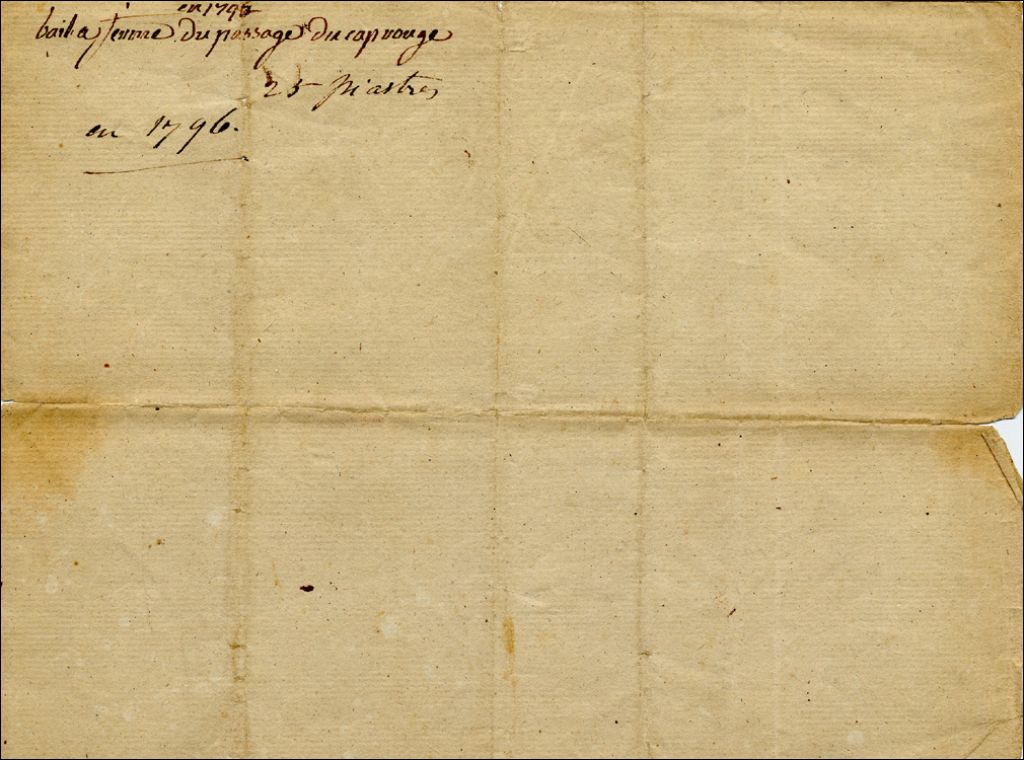 en 1795
bail a ferme du passage du cap rouge
25 piastres
en 1796.